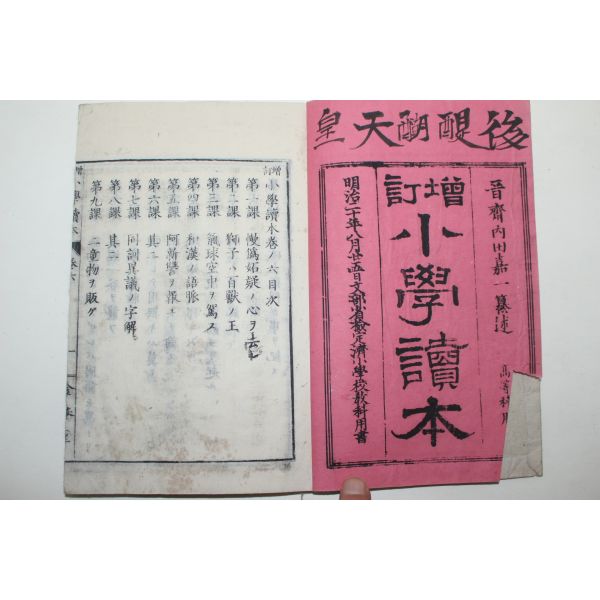 後醍醐天皇
晉齋内田嘉一纂述
高等科用
增訂
小學讀本
明治二十年八月廿五日文部省檢定濟小學校教科用書
增訂小學讀本卷ノ六目次
第一課
第二課 獅子ハ百獸ノ王
第三課 氣球空中ヲ駕ス
第四課 和漢ノ語脈
第五課 阿新讐ヲ報ユ
第六課 其二
第七課 同訓異議ノ字解
第八課 其二
第九課 二童物ヲ販グ
增訂小學讀本 卷六